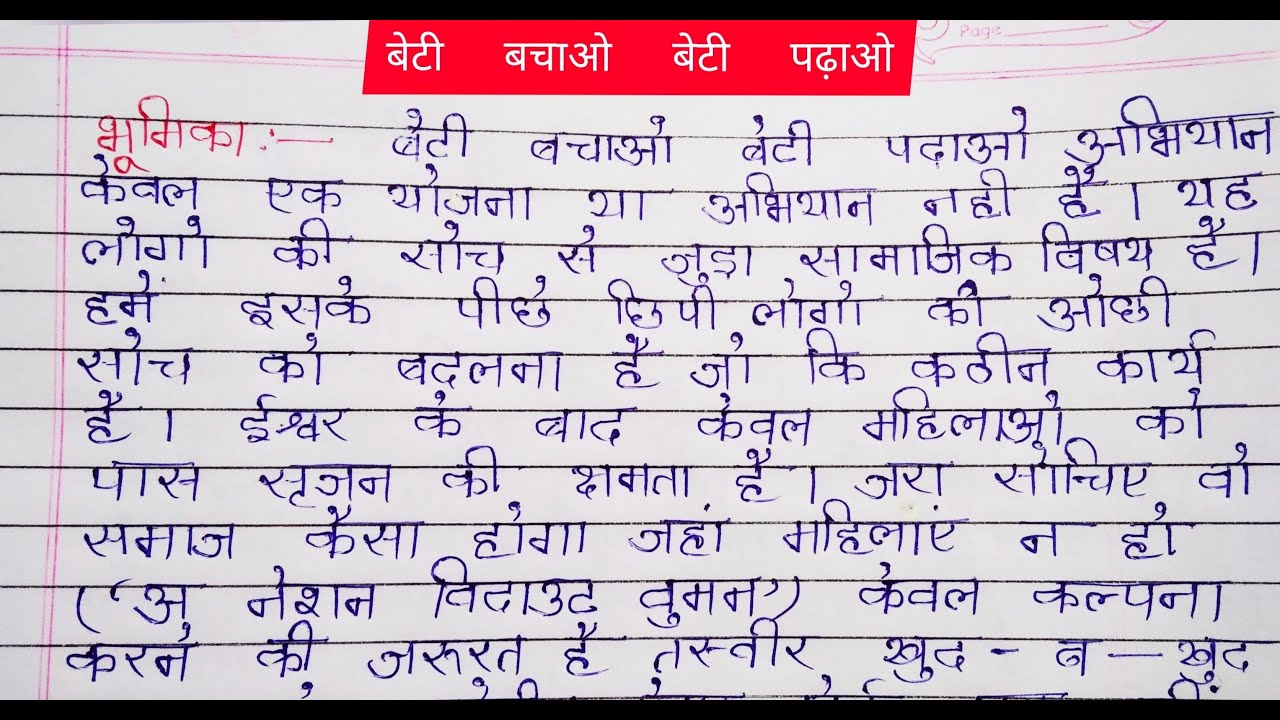 Page
बेटी बचाओ बेटी पढ़ाओ
भूमिका :— बेटी बचाओ बेटी पढाओ अभियान
केवल एक योजना या अभियान नही है। यह
लोगो की सोच से जुड़ा सामाजिक विषय है।
हमें इसके पीछे छिपी लोगो की ओछी
सोच को बदलना है जो कि कठीन कार्य
है। ईश्वर के बाद केवल महिलाओ को
पास सृजन की क्षमता है। जरा सोचिए वो
समाज कैसा होगा जहां महिलाएं न हो
(‘अ नेशन विदाउट वुमन’) केवल कल्पना
करने की जरूरत है तस्वीर खुद - ब - खुद